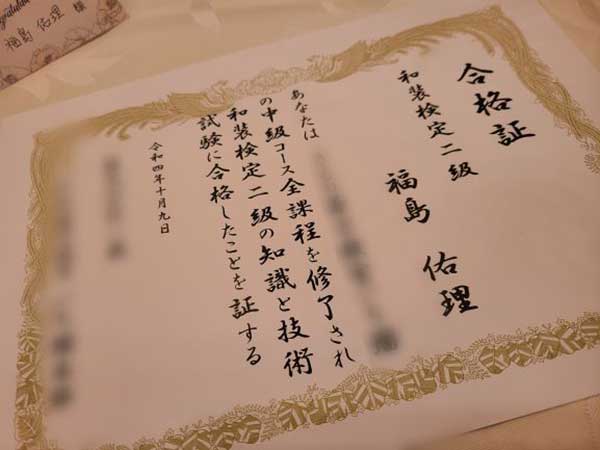 合格証
和装検定二級
福島 佑理
あなたは
の中級コース全課程を修了され
和装検定二級の知識と技術
試験に合格したことを証する
令和四年十月九日
福島 佑理 様